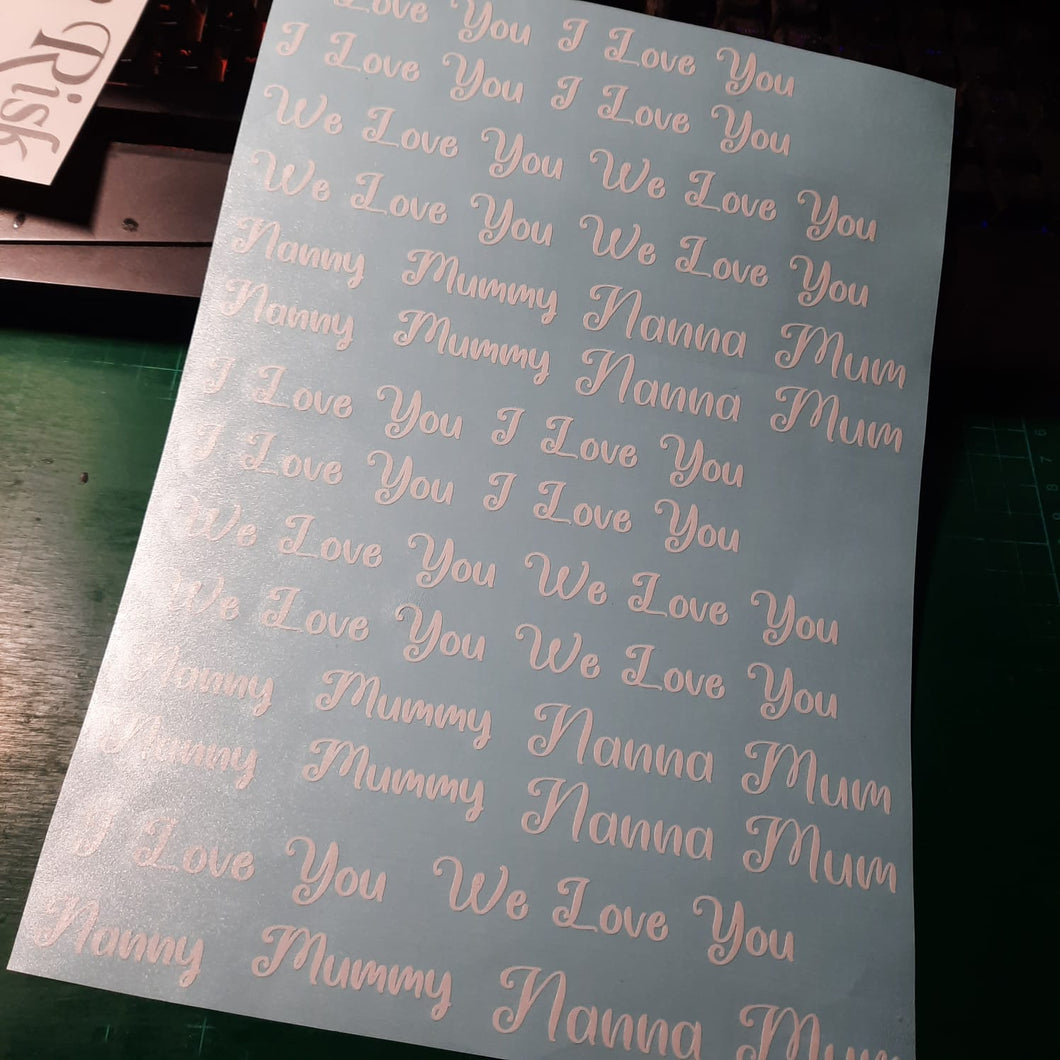 Risk
Love You I Love You
I Love You I Love You
We Love You We Love You
We Love You We Love You
Nanny Mummy Nanna Mum
Nanny Mummy Nanna Mum
I Love You I Love You
I Love You I Love You
We Love You We Love You
We Love You We Love You
Nanny Mummy Nanna Mum
Nanny Mummy Nanna Mum
I Love You We Love You
Nanny Mummy Nanna Mum